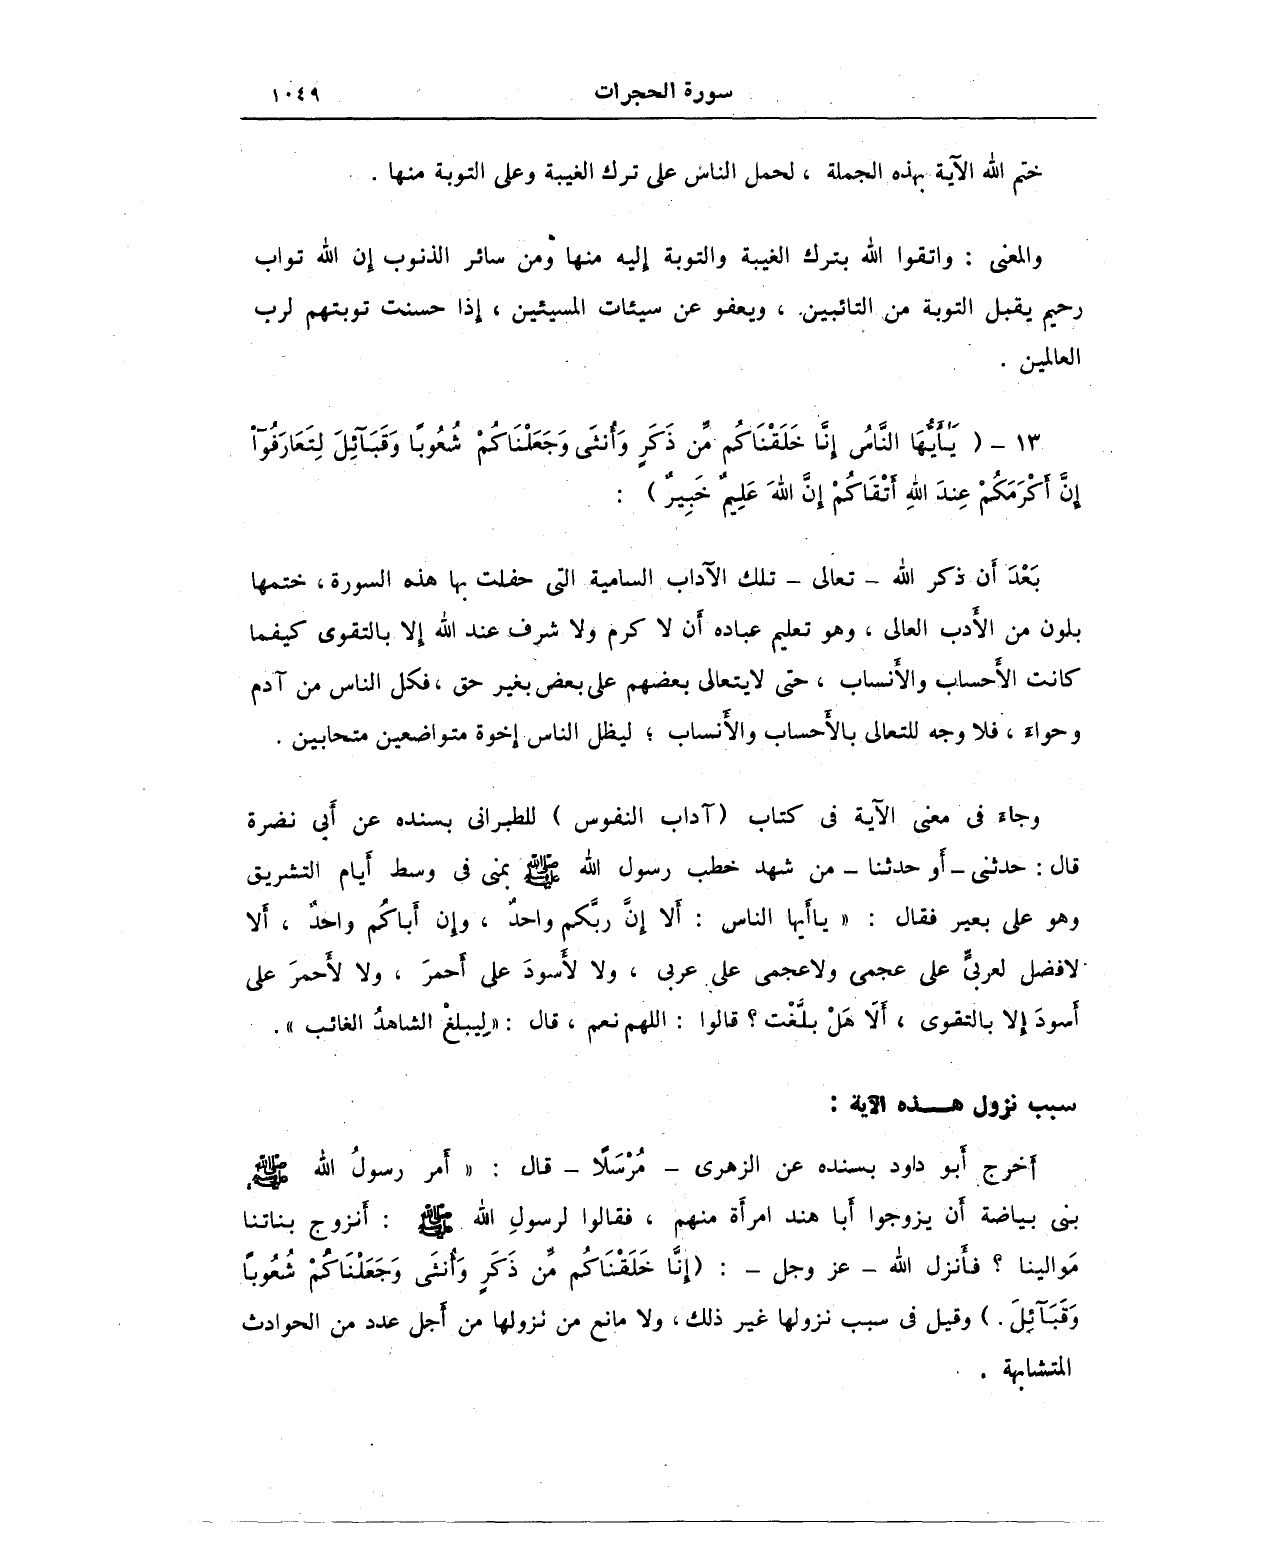 سورة الحجرات ١٠٤٩
ختم الله الآية بهذه الجملة ، لحمل الناس على ترك الغيبة وعلى التوبة منها .
والمعنى : واتقوا الله بترك الغيبة والتوبة إليه منها ومن سائر الذنوب إن الله تواب
رحيم يقبل التوبة من التائبين ، ويعفو عن سيئات المسيئين ، إذا حسنت توبتهم لرب
العالمين .
١٣ – ( يَٰأَيُّهَا النَّاسُ إِنَّا خَلَقْنَاكُم مِّن ذَكَرٍ وَأُنثَى وَجَعَلْنَاكُمْ شُعُوبًا وَقَبَآئِلَ لِتَعَارَفُوٓاْ
إِنَّ أَكْرَمَكُمْ عِندَ اللهِ أَتْقَاكُمْ إِنَّ اللهَ عَلِيمٌ خَبِيرٌ ) :
بَعْدَ أَن ذكر الله – تعالى – تلك الآداب السامية التى حفلت بها هذه السورة ، ختمها
بلون من الأَدب العالى ، وهو تعليم عباده أَن لا كرم ولا شرف عند الله إلا بالتقوى كيفما
كانت الأَحساب والأَنساب ، حتى لايتعالى بعضهم على بعض بغير حق ، فكل الناس من آدم
وحواء ، فلا وجه للتعالى بالأَحساب والأَنساب ؛ ليظل الناس إخوة متواضعين متحابين .
وجاء فى معنى الآية فى كتاب ( آداب النفوس ) للطبرانى بسنده عن أَبي نضرة
قال : حدثنى – أَو حدثنا – من شهد خطب رسول الله ﷺ بمنى فى وسط أَيام التشريق
وهو على بعير فقال : « ياأَيها الناس : أَلا إنَّ ربَّكم واحدٌ ، وإن أَباكُم واحدٌ ، أَلا
لافضل لعربىٍّ على عجمى ولاعجمى على عربى ، ولا لأَسودَ على أَحمرَ ، ولا لأَحمرَ على
أسودَ إلا بالتقوى ، أَلَا هَلْ بلَّغْت ؟ قالوا : اللهم نعم ، قال : « لِيبلغْ الشاهدُ الغائب » .
سبب نزول هـــذه الآية :
أخرج أَبو داود بسنده عن الزهرى – مُرْسَلًا – قال : « أَمر رسولُ الله ﷺ
بنى بياضة أَن يزوجوا أَبا هند امرأَة منهم ، فقالوا لرسولِ الله ﷺ : أَنزوج بناتنا
مَوالينا ؟ فأَنزل الله – عز وجل – : ( إِنَّا خَلَقْنَاكُم مِّن ذَكَرٍ وَأُنثَى وَجَعَلْنَاكُمْ شُعُوباً
وَقَبَآئِلَ . ) وقيل فى سبب نزولها غير ذلك ، ولا مانع من نزولها من أَجل عدد من الحوادث
المتشابهة .